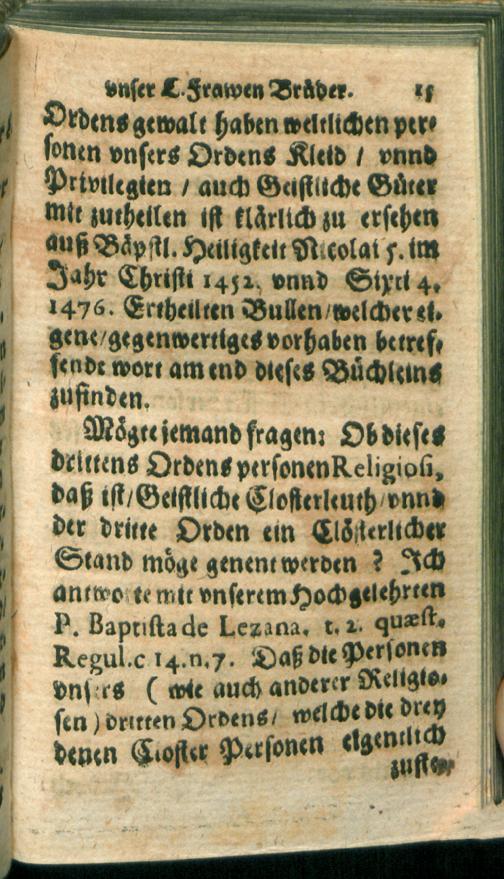 vnser L. Frawen Brüder. 15
Ordens gewalt haben weltlichen per⸗
sonen vnsers Ordens Kleid / vnnd
Privilegien / auch Geistliche Güter
mit zutheilen ist klärlich zu ersehen
auß Bäpstl. Heiligkeit Nicolai 5. im
Jahr Christi 1452. vnnd Sixti 4.
1476. Ertheilten Bullen / welcher ei⸗
gene / gegenwertiges vorhaben betref⸗
fende wort am end dieses Büchleins
zufinden.
Mögte jemand fragen: Ob dieses
drittens Ordens personen Religiosi,
daß ist / Geistliche Closterleuth / vnnd
der dritte Orden ein Clösterlicher
Stand möge genent werden ? Ich
antworte mit vnserem Hochgelehrten
P. Baptista de Lezana. t. 2. quæst.
Regul. c 14. n. 7. Daß die Personen
vnsers ( wie auch anderer Religio⸗
sen ) dritten Ordens / welche die drey
denen Closter Personen eigentlich
zuste⸗